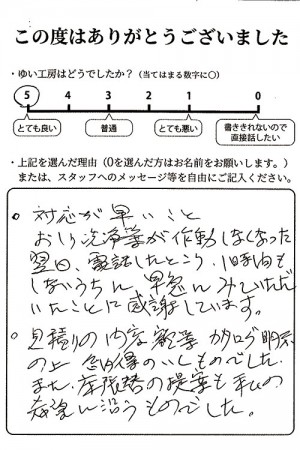 この度はありがとうございました
・ゆい工房はどうでしたか？（当てはまる数字に○）
5 4 3 2 1 0
とても良い 普通 とても悪い 書ききれないので直接話したい
・上記を選んだ理由（0を選んだ方はお名前をお願いします。）
または、スタッフへのメッセージ等を自由にご記入ください。
○ 対応が早いこと
おしり洗浄等が作動しなくなった
翌日、電話したところ、1時間も
しないうちに、早急にみていただ
いたことに感謝しています。
○ 見積りの内容 カタログ明示
の上 納得のいくものでした。
また、床張替の提案も私の
希望に沿うものでした。